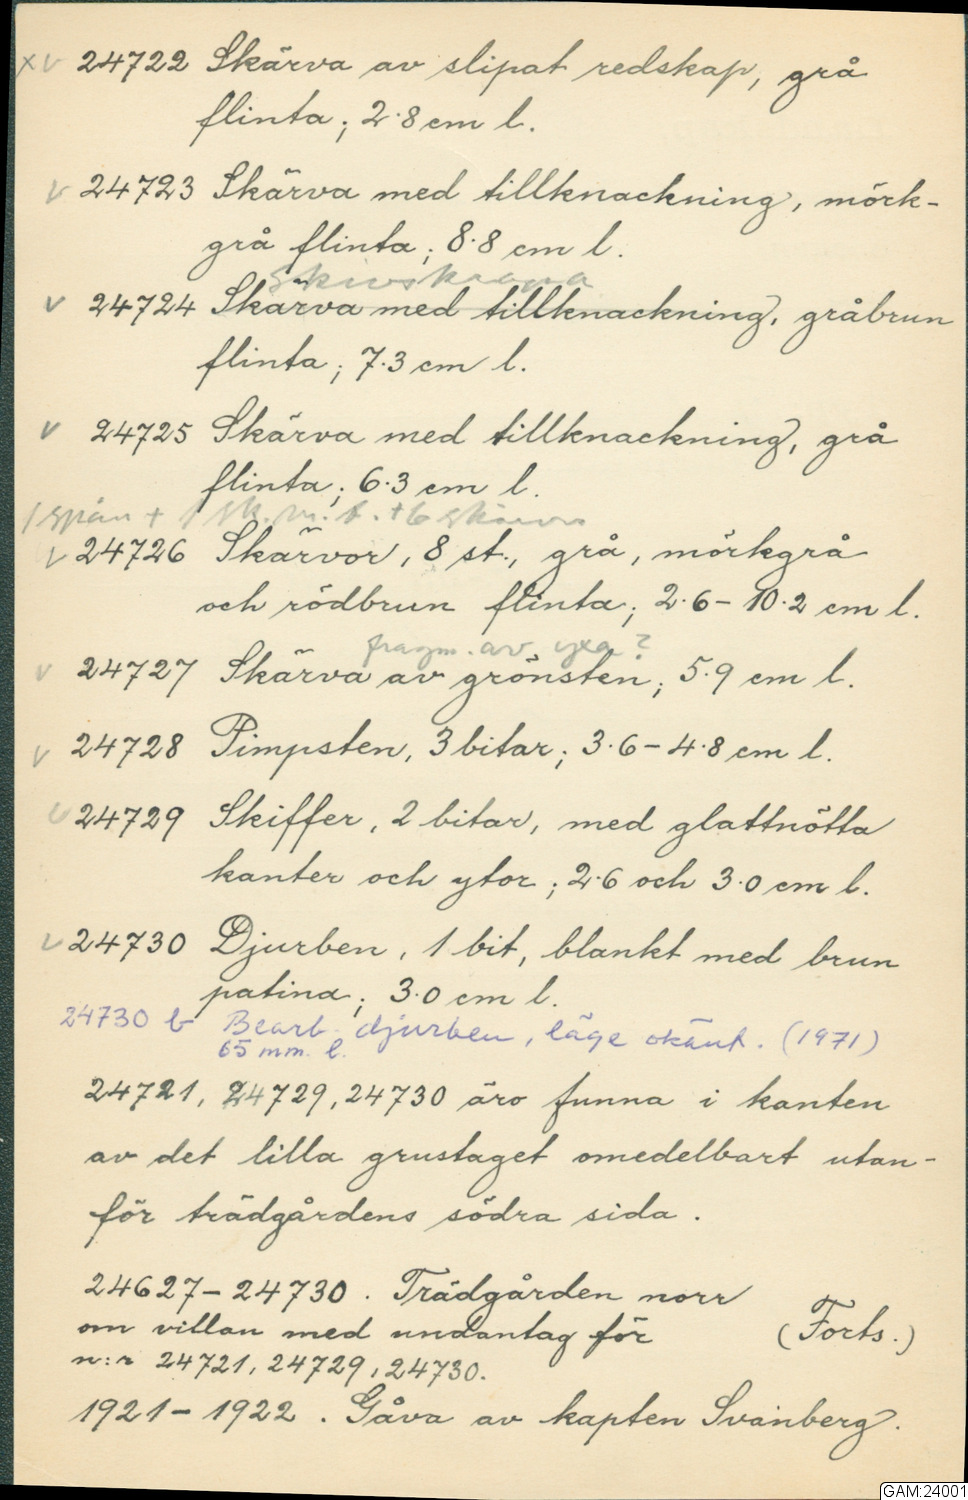 xv 24722 Skärva av slipat redskap, grå
flinta; 2.8 cm l.
v 24723 Skärva med tillknackning, mörk-
grå flinta; 8.8 cm l.
skivskrapa
v 24724 Skärva med tillknackning, gråbrun
flinta; 7.3 cm l.
v 24725 Skärva med tillknackning, grå
flinta; 6.3 cm l.
1 spån + 1 sk. m. t. + 6 skärvor
v 24726 Skärvor, 8 st., grå, mörkgrå
och rödbrun flinta; 2.6 – 10.2 cm l.
fragm. av yxa?
v 24727 Skärva av grönsten; 5.9 cm l.
v 24728 Pimpsten, 3 bitar; 3.6 – 4.8 cm l.
v 24729 Skiffer, 2 bitar, med glattnötta
kanter och ytor; 2.6 och 3.0 cm l.
v 24730 Djurben, 1 bit, blankt med brun
patina; 3.0 cm l.
24730 b Bearb. djurben, läge okänt. (1971)
65 mm. l.
24721, 24729, 24730 äro funna i kanten
av det lilla grustaget omedelbart utan-
för trädgårdens södra sida.
24627 – 24730. Trädgården norr
om villan med undantag för (Forts.)
n:r 24721, 24729, 24730.
1921 – 1922. Gåva av kapten Svanberg.
GAM:24001